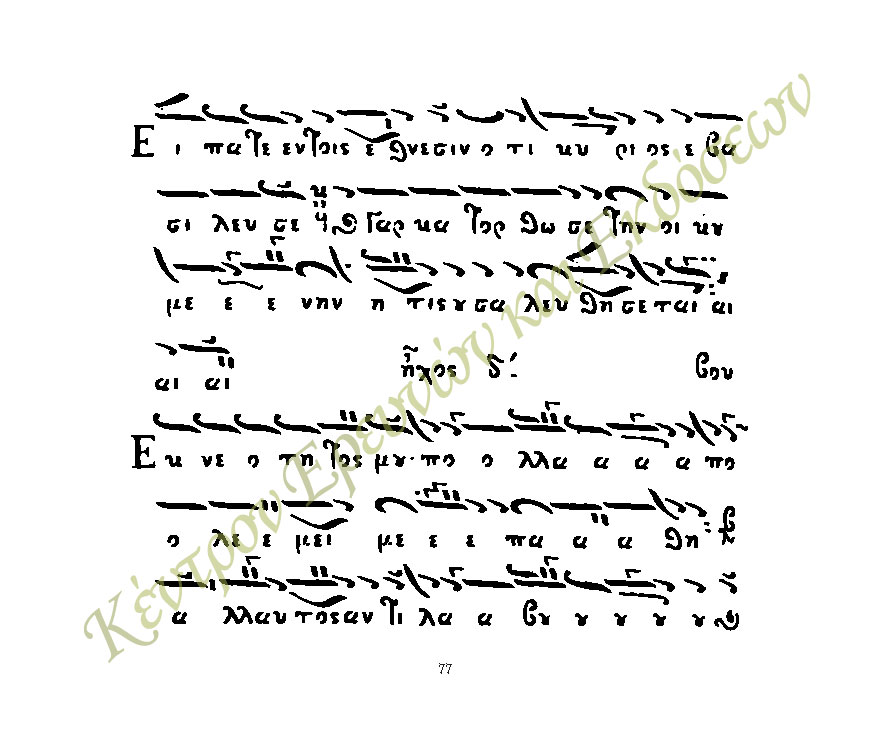 Ε ι πα τε εν τοις ε θνε σιν ο τι κυ ρι ος ε βα
σι λευ σε ϗ γαρ κα τορ θω σε την οι κȣ
με ε ε νην η τις ȣ σα λευ θη σε ται αι
αι αι ἦχος δ΄. βου
Ε κ νε ο τη τος μȣ· πο ο λλα α α α πο
ο λε ε μει με ε ε πα α α θη
α λλ αυ τος αν τι λα α βȣ ȣ ȣ ȣ ȣ
77
Κέντρον Ερευνών και Εκδόσεων